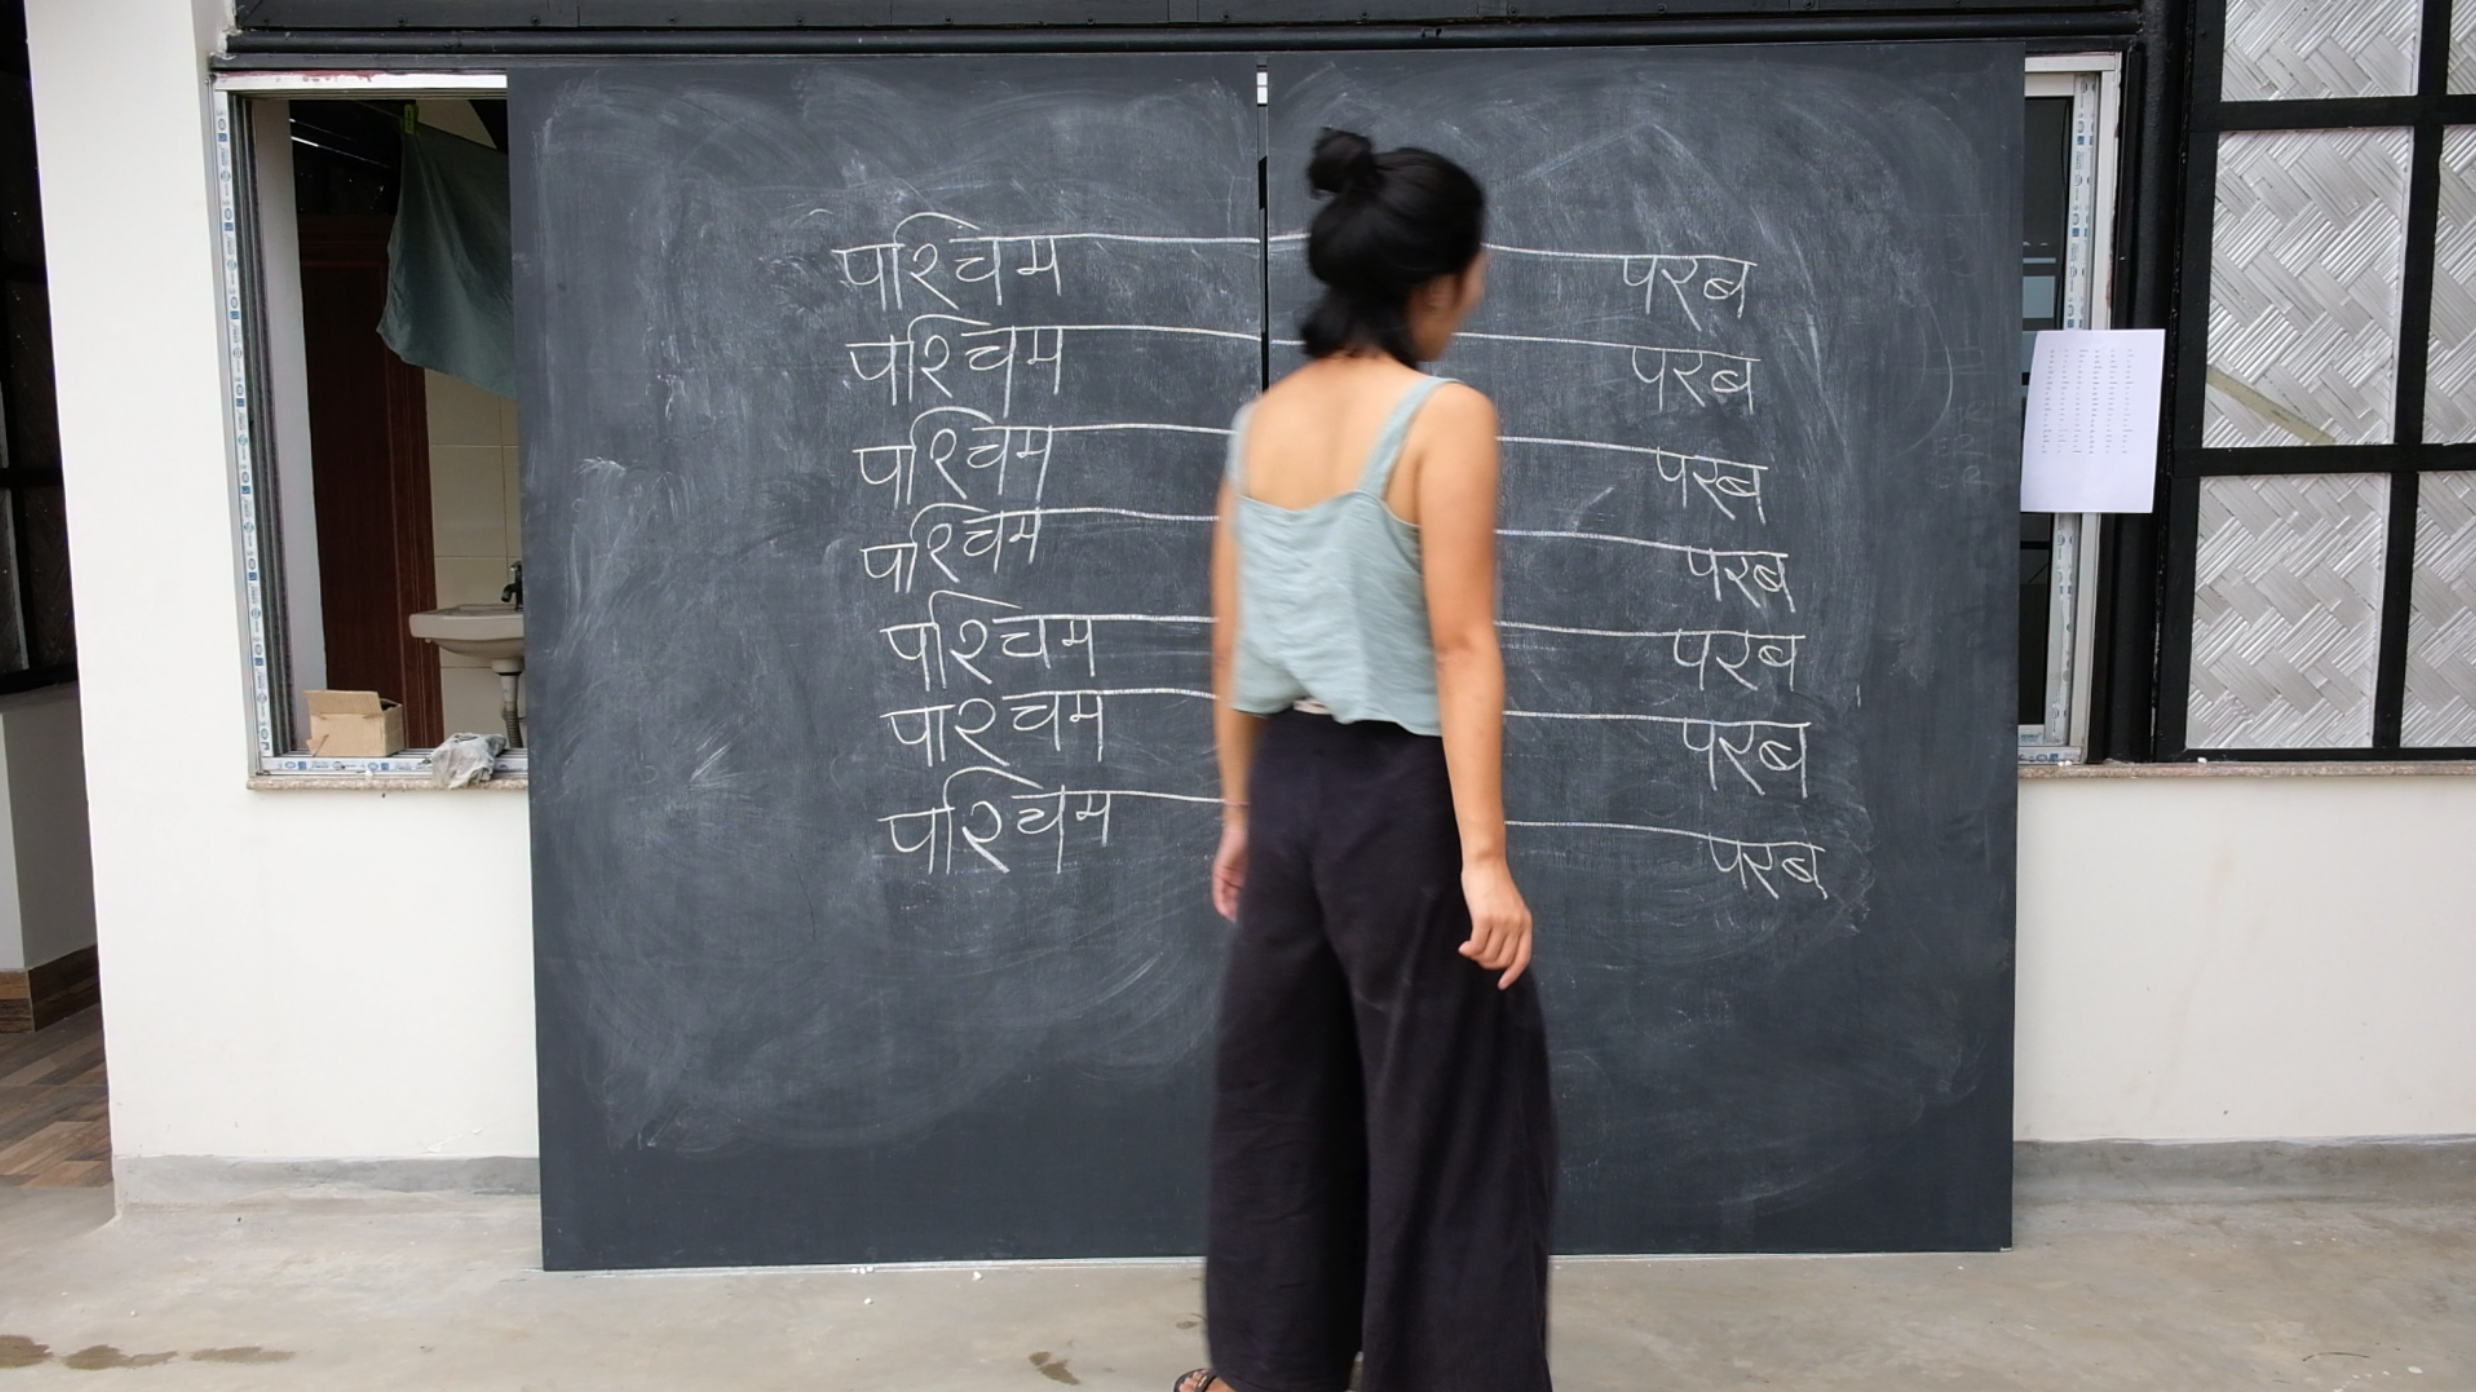 पश्चिम परब
पश्चिम परब
पश्चिम परब
पश्चिम परब
पश्चिम परब
पाश्चम परब
पश्चिम परब